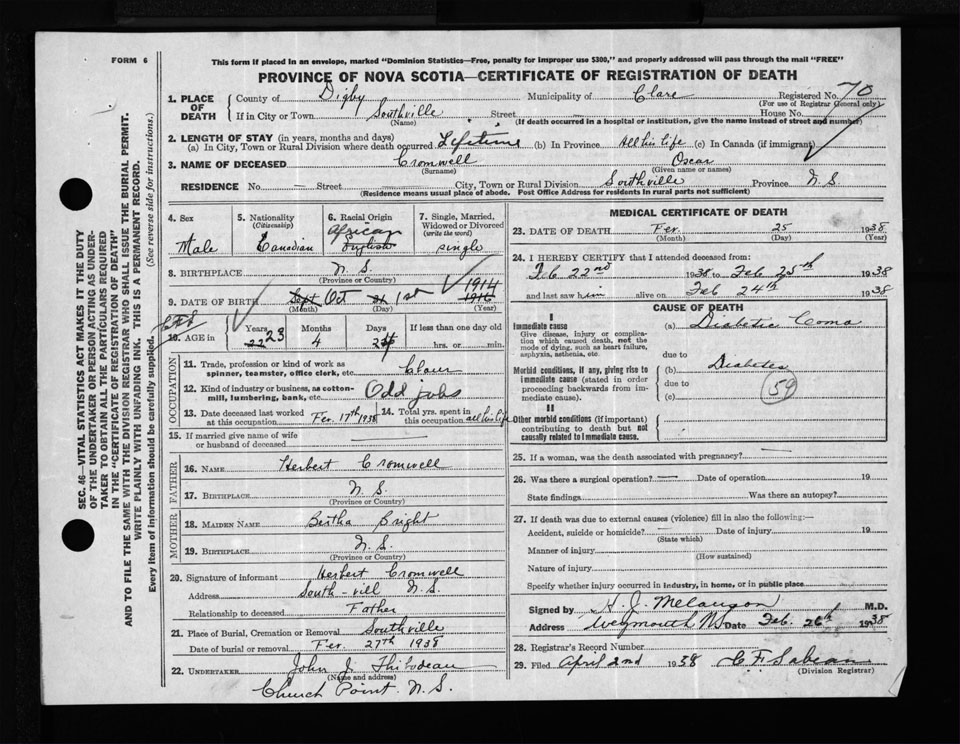 FORM 6
This form if placed in an envelope, marked "Dominion Statistics—Free, penalty for improper use $300," and properly addressed will pass through the mail "FREE"
PROVINCE OF NOVA SCOTIA—CERTIFICATE OF REGISTRATION OF DEATH
SEC. 46—VITAL STATISTICS ACT MAKES IT THE DUTY
OF THE UNDERTAKER OR PERSON ACTING AS UNDER-
TAKER TO OBTAIN ALL THE PARTICULARS REQUIRED
IN THE "CERTIFICATE OF REGISTRATION OF DEATH"
AND TO FILE THE SAME WITH THE DIVISION REGISTRAR WHO SHALL ISSUE THE BURIAL PERMIT.
WRITE PLAINLY WITH UNFADING INK. THIS IS A PERMANENT RECORD.
Every item of information should be carefully supplied. (See reverse side for instructions.)
1. PLACE OF DEATH County of Digby Municipality of Clare Registered No. 70
(For use of Registrar General only)
If in City or Town Southville Street House No.
(Name) (If death occurred in a hospital or institution, give the name instead of street and number)
2. LENGTH OF STAY (in years, months and days)
(a) In City, Town or Rural Division where death occurred Lifetime (b) In Province All his life (c) In Canada (if immigrant)
3. NAME OF DECEASED Cromwell Oscar
(Surname) (Given name or names)
RESIDENCE No. — Street City, Town or Rural Division Southville Province N.S.
(Residence means usual place of abode. Post Office Address for residents in rural parts not sufficient)
4. Sex Male
5. Nationality (Citizenship) Canadian
6. Racial Origin African English
7. Single, Married, Widowed or Divorced (write the word) single
8. BIRTHPLACE N.S.
(Province or Country)
9. DATE OF BIRTH Sept Oct 21 1st 1914 1916
(Month) (Day) (Year)
CFS
10. AGE in Years 22 23 Months 4 Days If less than one day old hrs. or min.
OCCUPATION
11. Trade, profession or kind of work as spinner, teamster, office clerk, etc.
12. Kind of industry or business, as cotton-mill, lumbering, bank, etc. Odd jobs
13. Date deceased last worked at this occupation Fer. 17th 1938 14. Total yrs. spent in this occupation all his life
15. If married give name of wife or husband of deceased —
FATHER
16. NAME Herbert Cromwell
17. BIRTHPLACE N.S.
(Province or Country)
MOTHER
18. MAIDEN NAME Bertha Bright
19. BIRTHPLACE N.S.
(Province or Country)
20. Signature of informant Herbert Cromwell
Address South-vill N.S.
Relationship to deceased Father
21. Place of Burial, Cremation or Removal Southville
Date of burial or removal Fer. 27th 1938
22. UNDERTAKER John J. Thibodeau
(Name and address)
Church Point N.S.
MEDICAL CERTIFICATE OF DEATH
23. DATE OF DEATH Fer. 25 1938
(Month) (Day) (Year)
24. I HEREBY CERTIFY that I attended deceased from:
Feb 22nd 1938 to Feb 25th 1938
and last saw him alive on Feb 24th 1938
CAUSE OF DEATH
I
Immediate cause
Give disease, injury or complication which caused death, not the mode of dying, such as heart failure, asphyxia, asthenia, etc.
(a) Diabetic Coma
due to
Morbid conditions, if any, giving rise to immediate cause (stated in order proceeding backwards from immediate cause).
(b) Diabetes
due to 59
(c)
II
Other morbid conditions (if important) contributing to death but not causally related to immediate cause.
25. If a woman, was the death associated with pregnancy? —
26. Was there a surgical operation? — Date of operation 19
State findings Was there an autopsy?
27. If death was due to external causes (violence) fill in also the following:—
Accident, suicide or homicide? Date of injury 19
(State which)
Manner of injury
(How sustained)
Nature of injury
Specify whether injury occurred in industry, in home, or in public place
Signed by H. J. Melanson M.D.
Address Weymouth NS Date Feb. 26th 1938
28. Registrar's Record Number
29. Filed April 2nd 1938 C F Sabean
(Division Registrar)